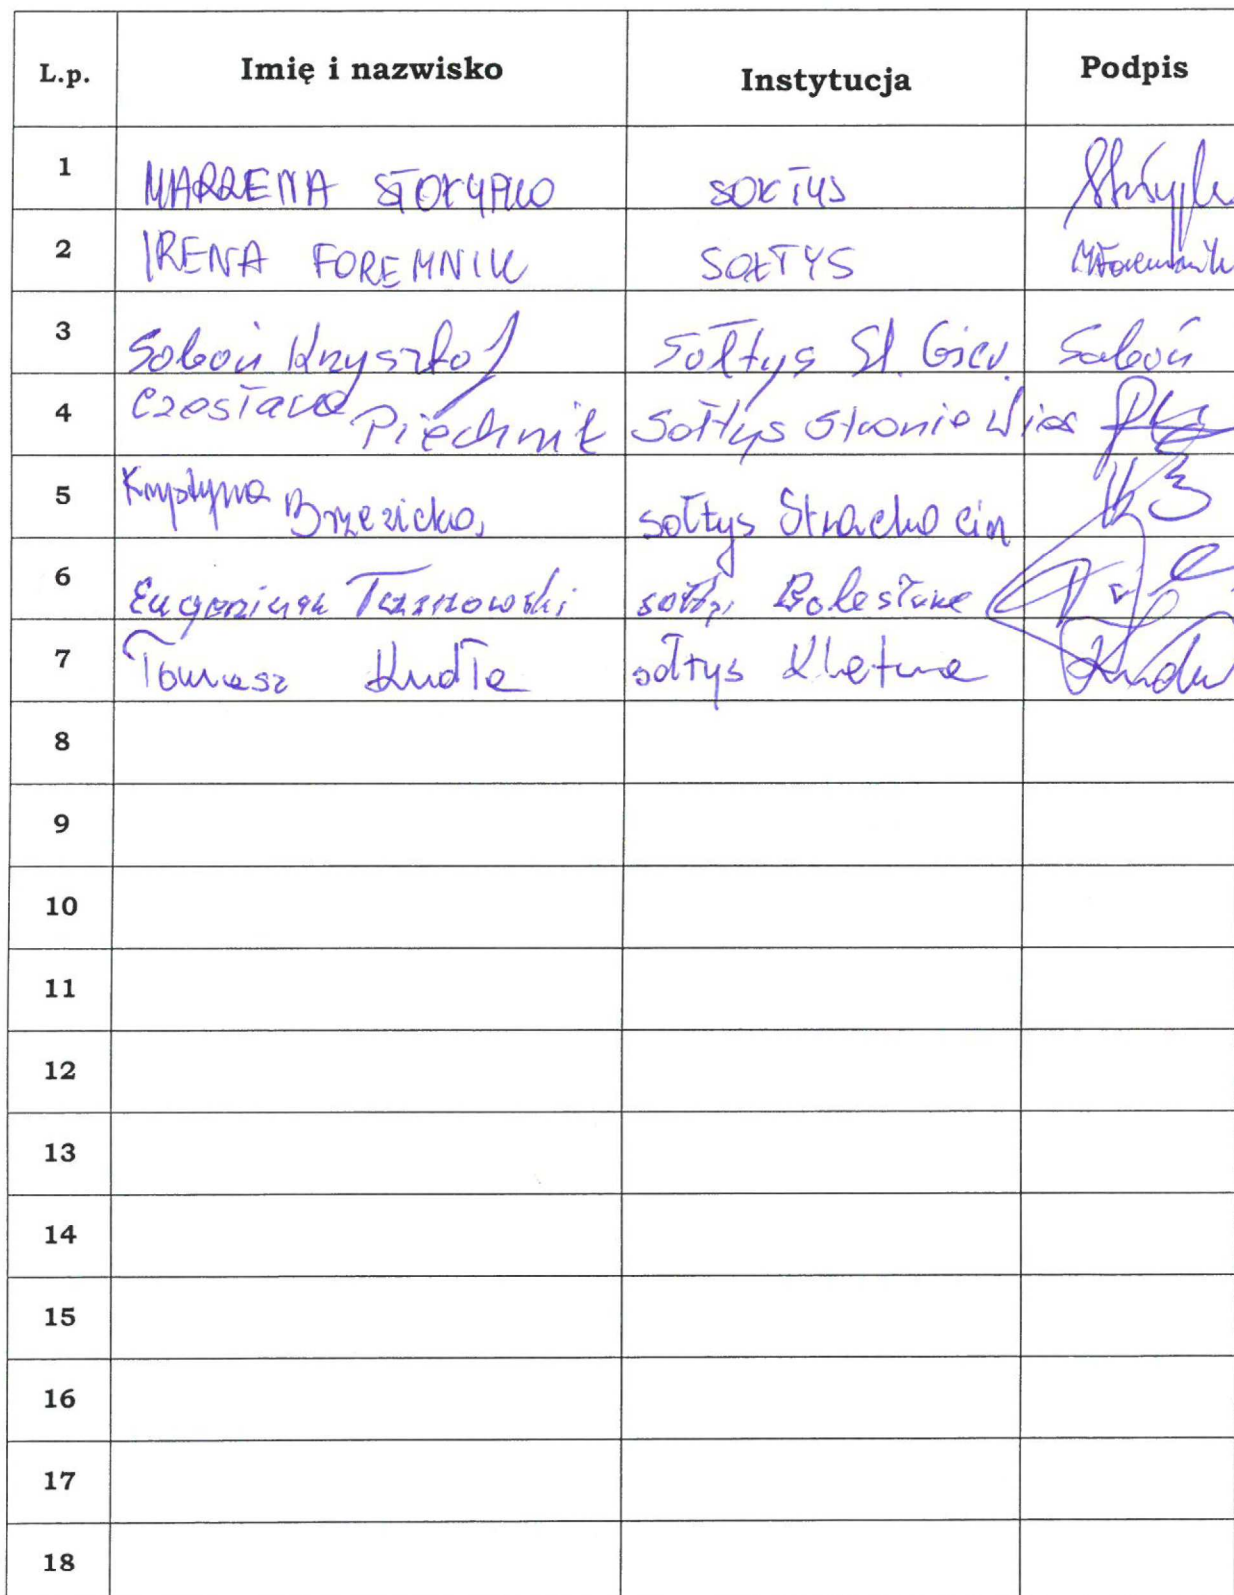 L.p. Imię i nazwisko Instytucja Podpis
1 MARZENA SOŁTYS
2 IRENA FOREMNIK SOŁTYS
3 Soboń Krzysztof Sołtys St. Soboń
4 Czesława Piechnik Sołtys Stronie Wieś
5 Krystyna Brzezicka, sołtys Strachocin
6 Eugeniusz Tarnowski Bolesław
7 Tomasz Kudła sołtys Kletna
8
9
10
11
12
13
14
15
16
17
18